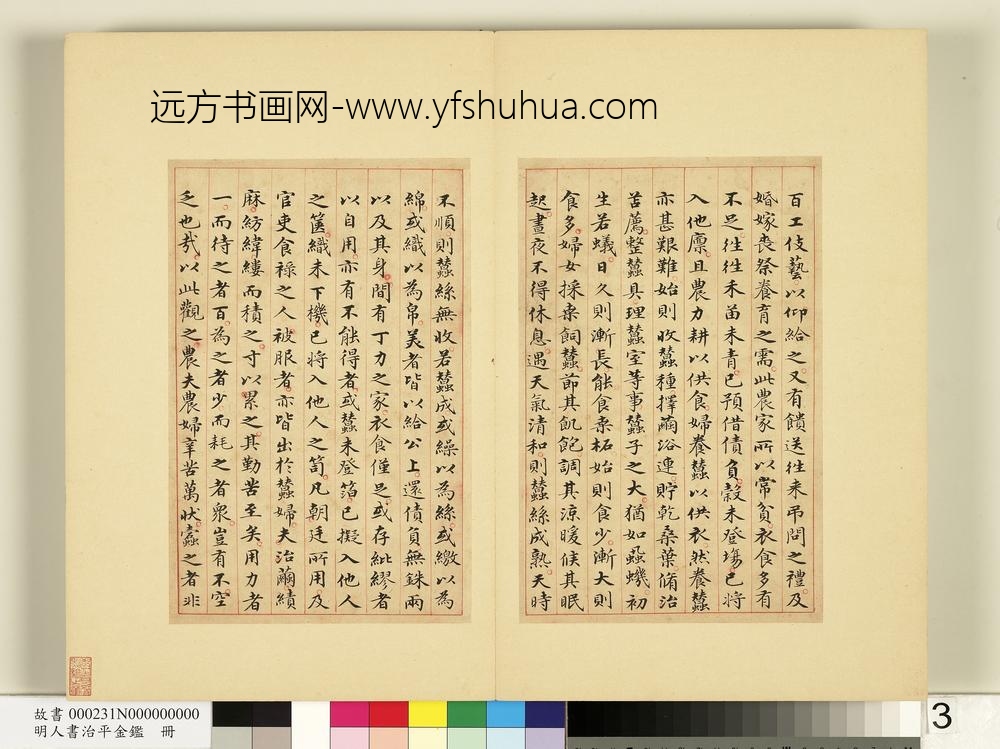 远方书画网-www.yfshuhua.com
百工伎藝以仰給之又有饋送往来弔問之禮及
婚嫁喪祭養育之需此農家所以常貧衣食多有
不足往往禾苗未青已預借債負穀未登場已將
入他廪且農力耕以供食婦養蠶以供衣然養蠶
亦甚艱難始則收蠶種擇繭浴連貯乾桑葉脩治
苫薦整蠶具理蠶室等事蠶子之大猶如蝨蟣初
生若蟻日久則漸長能食桒柘始則食少漸大則
食多婦女採桒飼蠶節其飢飽調其涼暖候其眠
起晝夜不得休息遇天氣清和則蠶絲成熟天時
不順則蠶絲無收若蠶成或繰以為絲或繳以為
綿或織以為帛美者皆以給公上還債負無銖兩
以及其身間有丁力之家衣食僅足或存紕繆者
以自用亦有不能得者或蠶未登箔已擬入他人
之篋織未下機已將入他人之笥凡朝廷所用及
官吏食禄之人被服者亦皆出於蠶婦夫治繭績
麻紡緯縷而積之寸以累之其勤苦至矣用力者
一而待之者百為之者少而耗之者衆豈有不空
乏也㢤以此觀之農夫農婦辛苦萬状蠧之者非
故書 000231N000000000
明人書治平金鑑 冊
3